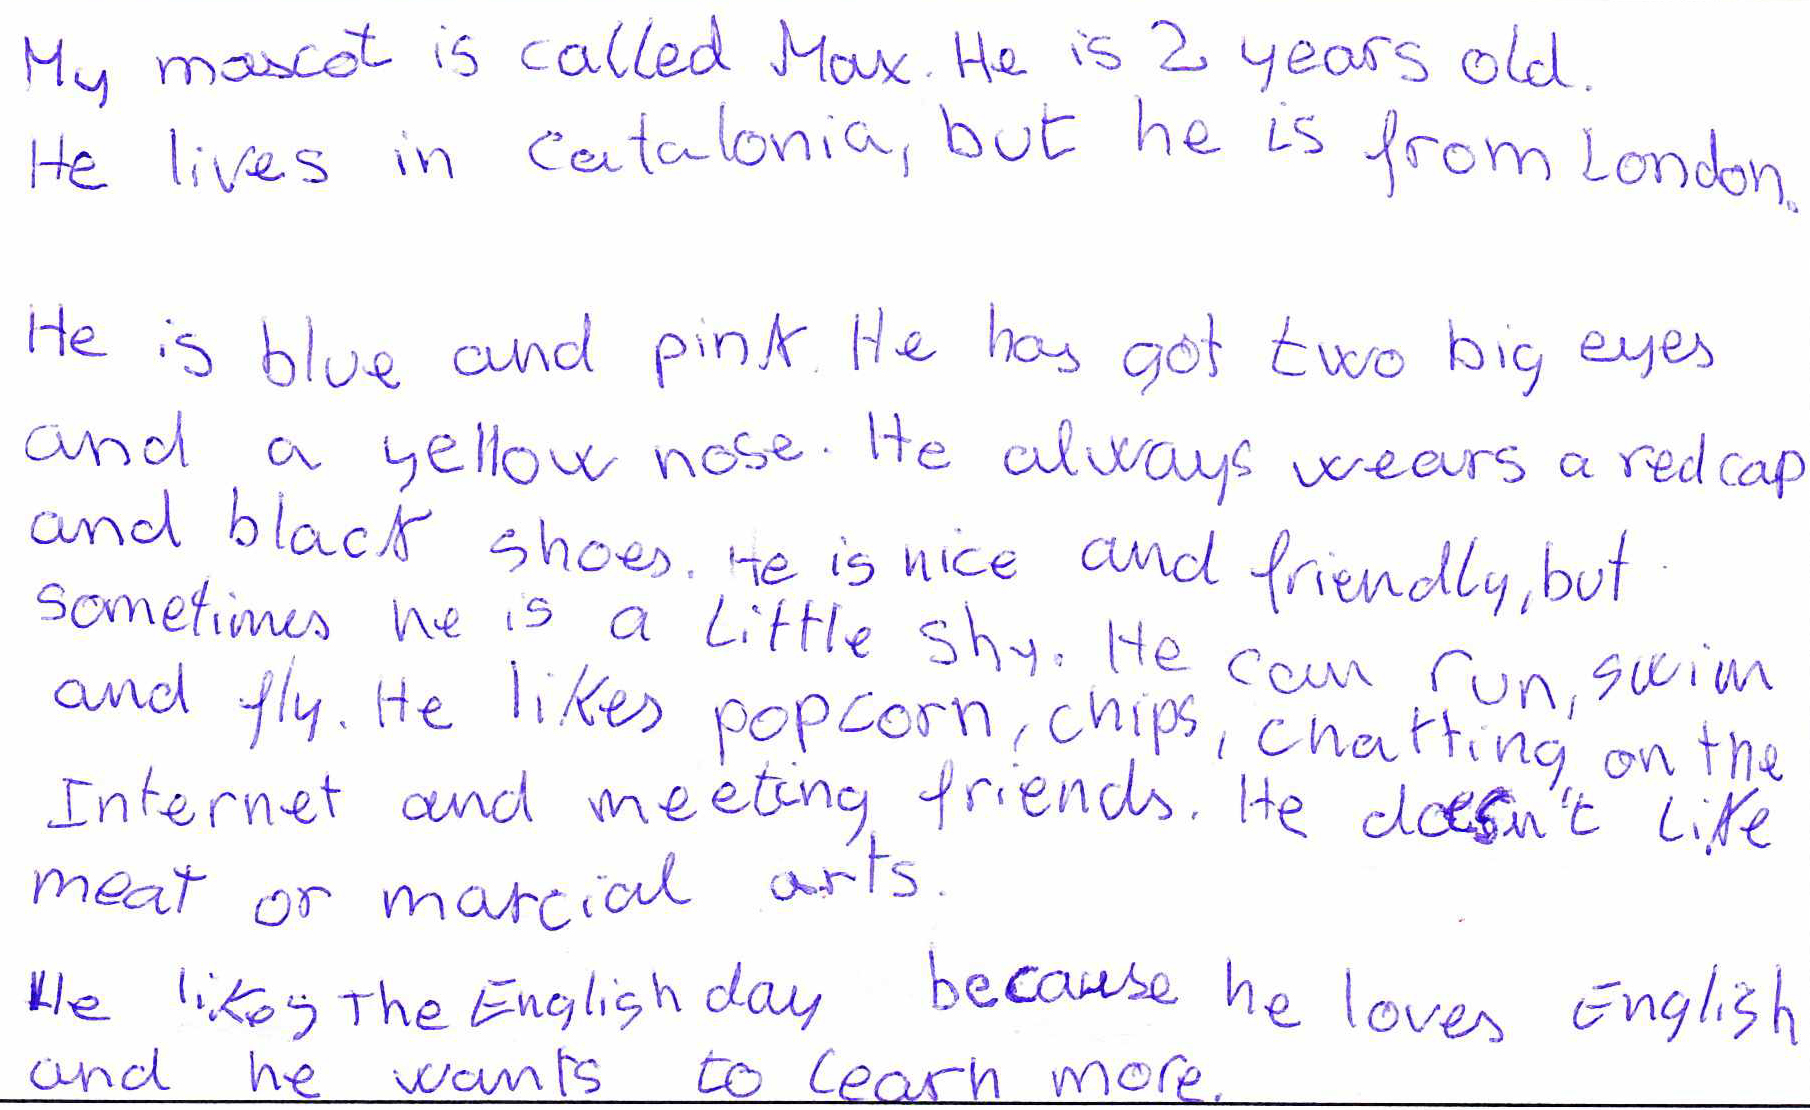 My mascot is called Max. He is 2 years old.
He lives in Catalonia, but he is from London.
He is blue and pink. He has got two big eyes
and a yellow nose. He always wears a red cap
and black shoes. He is nice and friendly, but
sometimes he is a little shy. He can run, swim
and fly. He likes popcorn, chips, chatting on the
Internet and meeting friends. He doesn't like
meat or marcial arts.
He likes the English day because he loves English
and he wants to learn more.